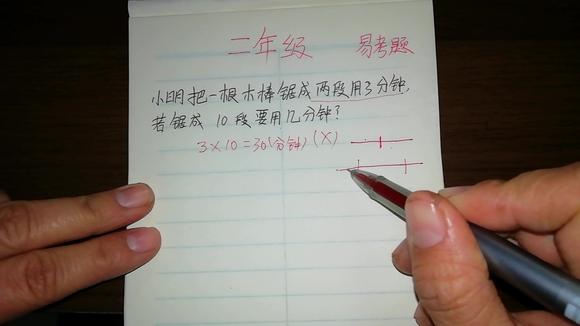 二年级 易考题
小明把一根木棒锯成两段用3分钟,
若锯成10段要用几分钟?
3×10=30(分钟)(×)